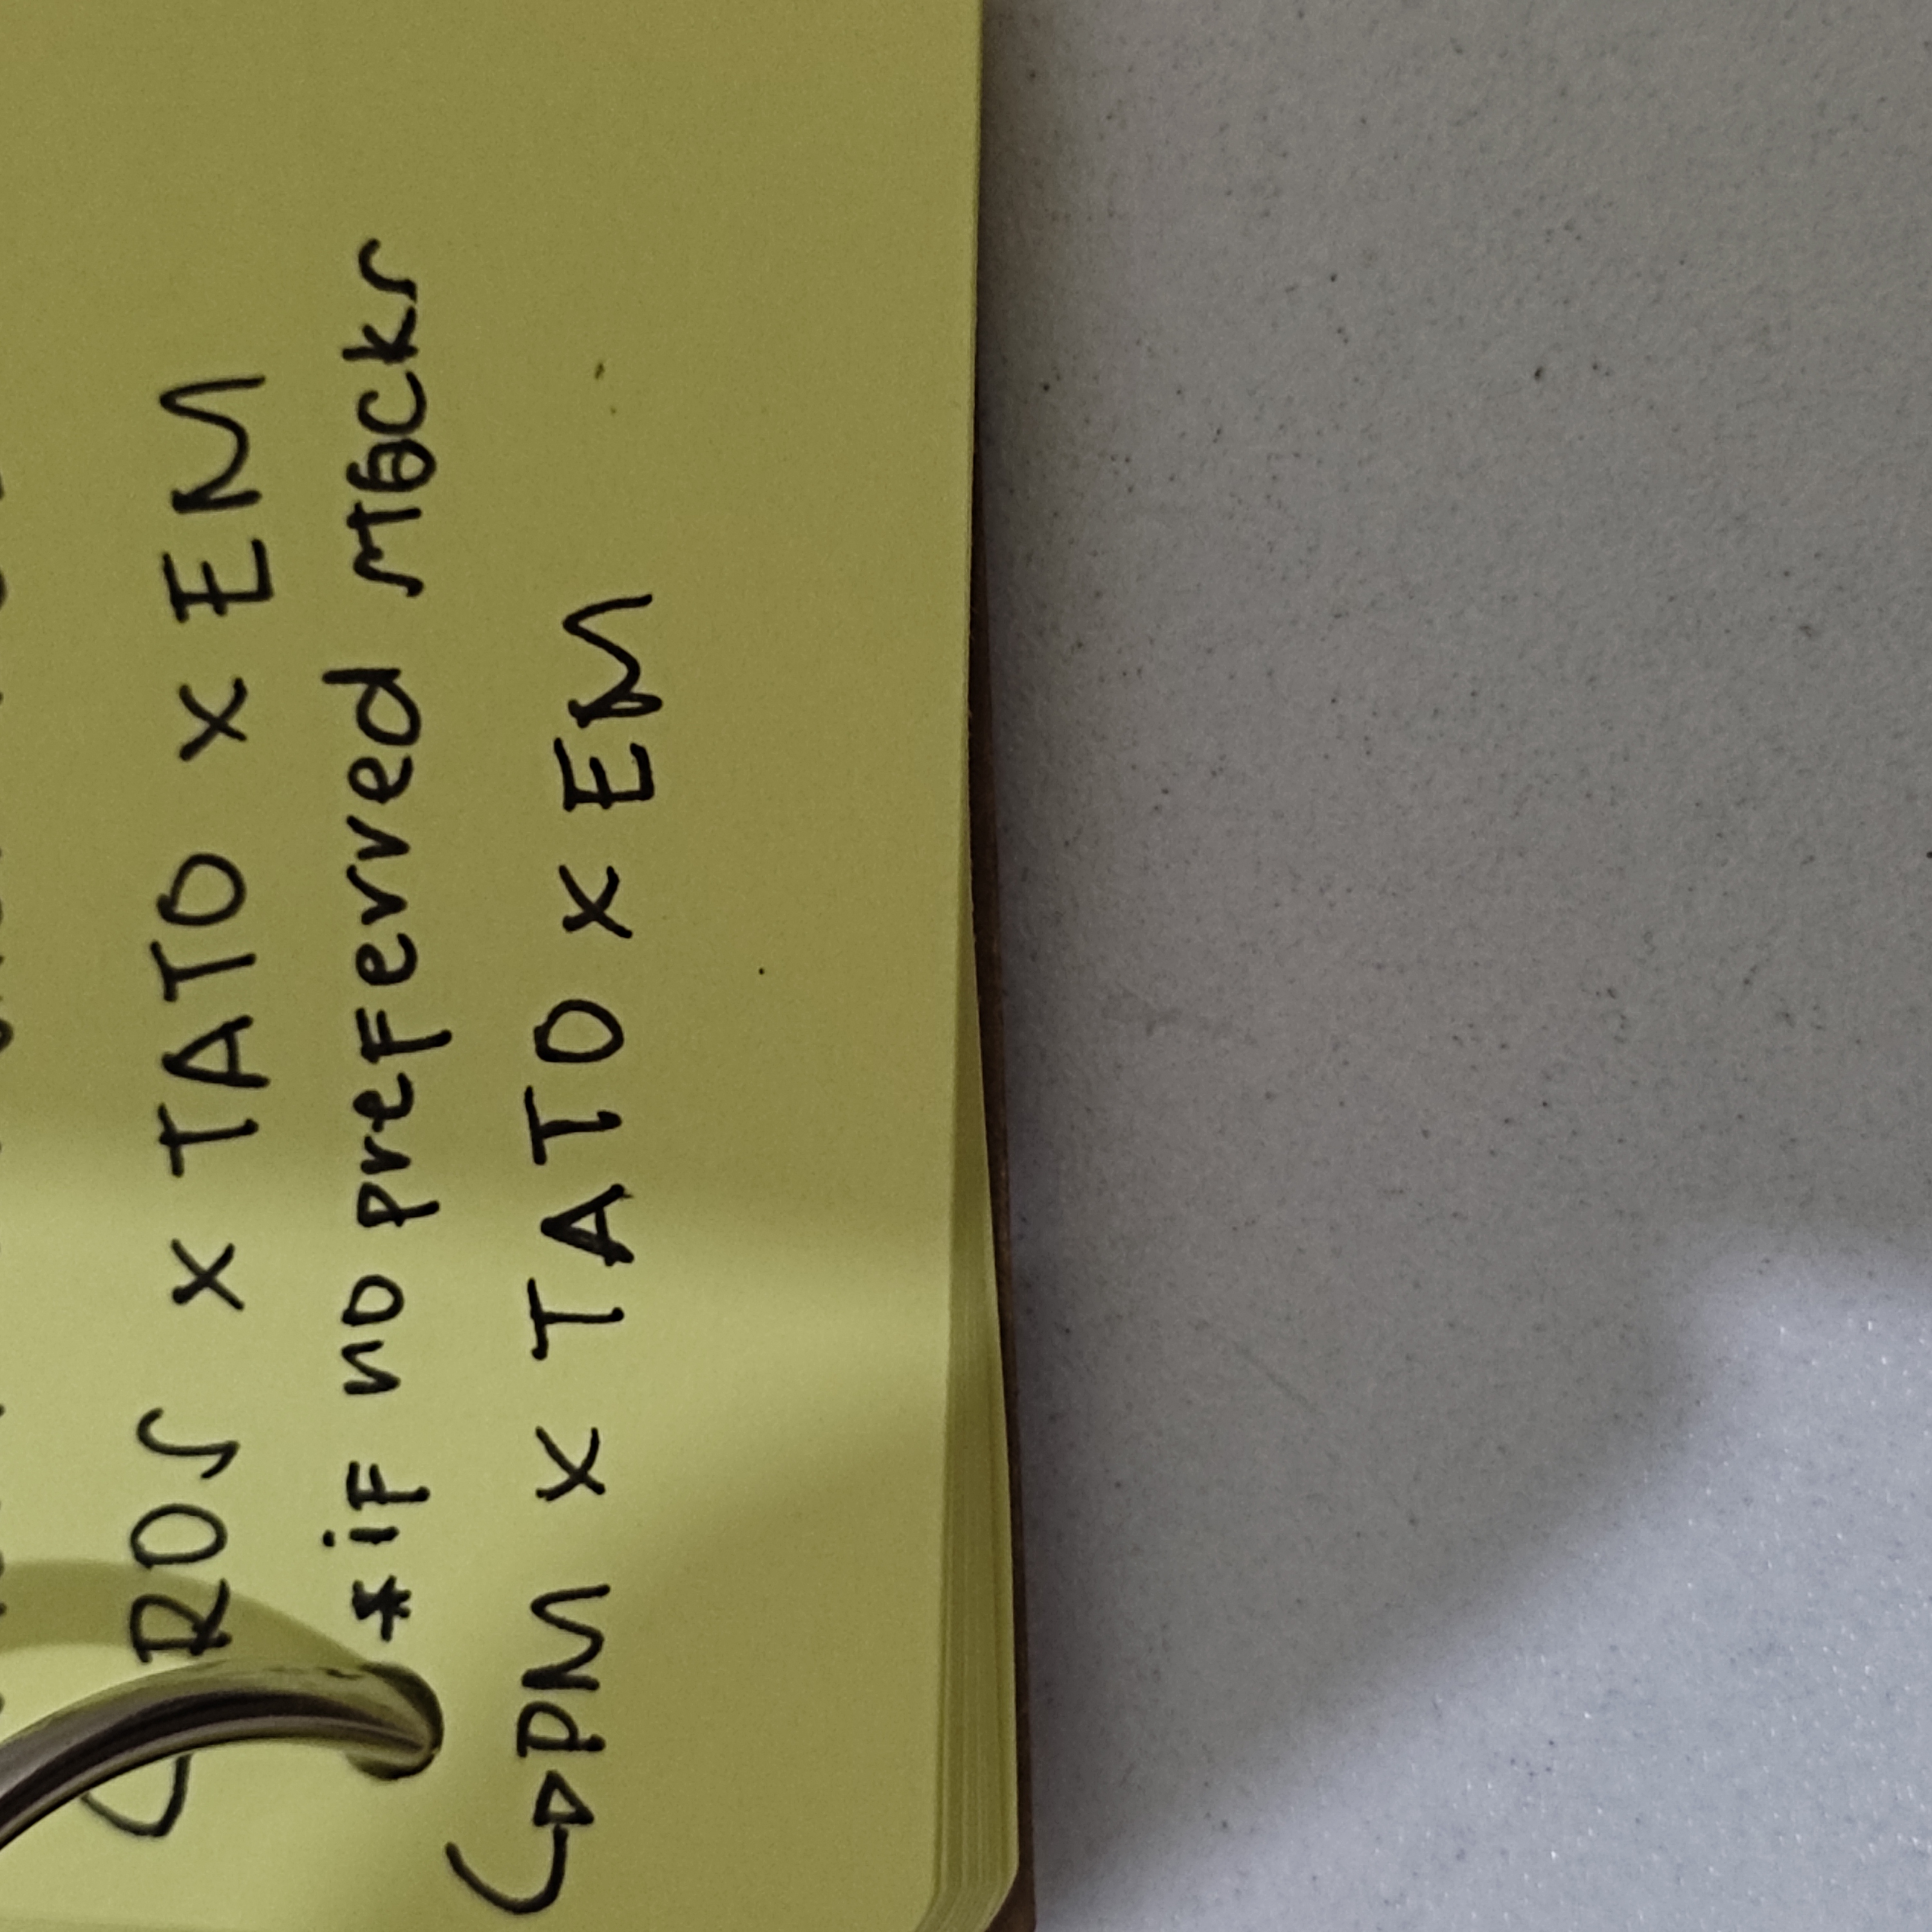 ROS x TATO x EM
*iF no preFerred stocks
↳ PM x TATO x EM